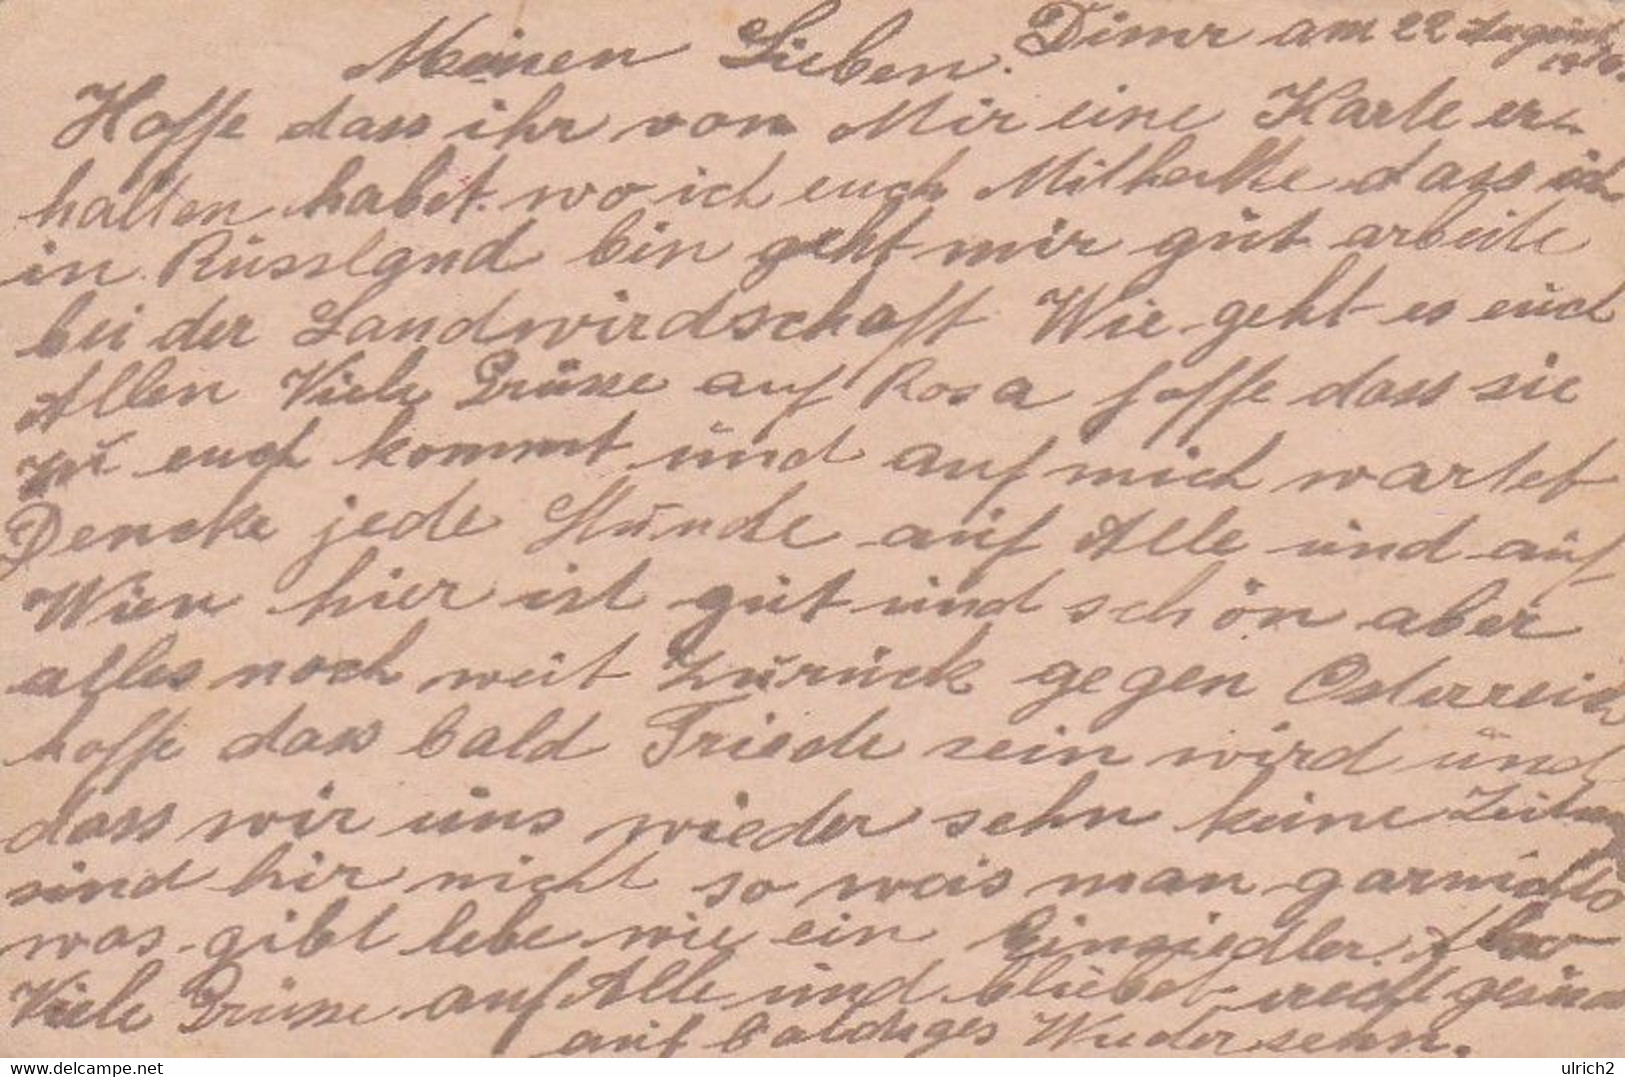 Meinen Lieben. Dimr am 22 August
Hoffe dass ihr von Mir eine Karte er-
halten habet. wo ich euch Mitheilte dass ich
in Rüssland bin geht mir güt arbeite
bei der Landwirdschaft Wie geht es eüch
Allen Viele Grüsse auf Rosa hoffe dass sie
zü euch kommt ünd auf mich wartet
Dencke jede Stünde aüf Alle ünd aüf
Wien hier ist güt ünd schön aber
alles noch weit zürück gegen Österreich
hoffe dass bald Friede sein wird ünd
dass wir üns wieder sehn keine Zeitung
sind hir nicht so weis man garnichts
was gibt lebe wie ein Einsiedler. Also
Viele Grüsse auf Alle ünd bliebet recht gesünd
aüf baldiges Wiedersehn.
ulrich2